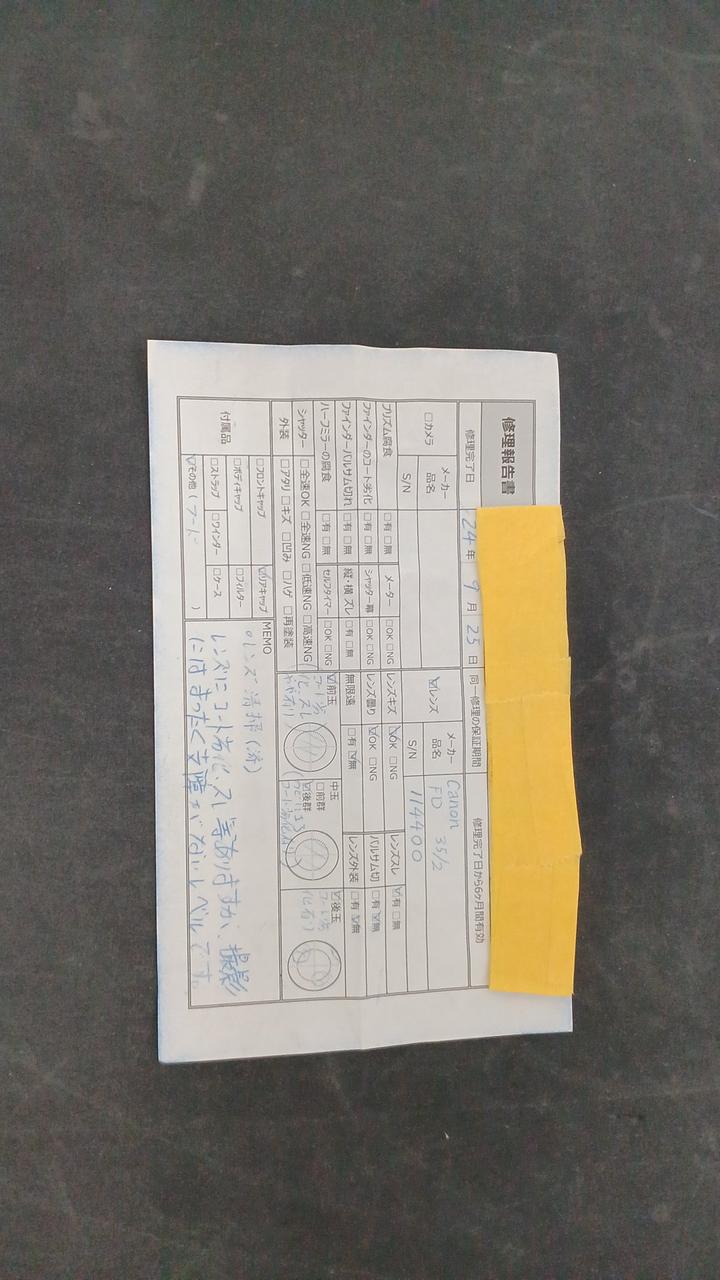 修理報告書
修理完了日 '24 年 9 月 25 日 同一修理の保証期間 修理完了日から6ヶ月間有効
□カメラ メーカー 品名 S/N
☑レンズ メーカー 品名 Canon FD 35/2
S/N 114400
プリズム腐食 □有 □無 メーター □OK □NG レンズキズ ☑OK □NG レンズスレ ☑有 □無
ファインダーのコート劣化 □有 □無 シャッター幕 □OK □NG レンズ曇り ☑OK □NG バルサム切 □有 ☑無
ファインダーバルサム切れ □有 □無 縦・横 ズレ □有 □無 無限遠 □有 ☑無 レンズ外装 □有 ☑無
ハーフミラーの腐食 □有 □無 セルフタイマー □OK □NG
シャッター □全速OK □全速NG □低速NG □高速NG
外装 □アタリ □キズ □凹み □ハゲ □再塗装
☑前玉 コート劣化、スレやや有り
中玉 □前群 ☑後群
☑後玉 コート劣化有)
付属品
□フロントキャップ ☑リアキャップ
□ボディキャップ □フィルター
□ストラップ □ワインダー □ケース
☑その他 ( フード )
MEMO
○レンズ清掃(済)
レンズにコート劣化、スレ等ありますが、撮影
にはまったく支障がないレベルです。